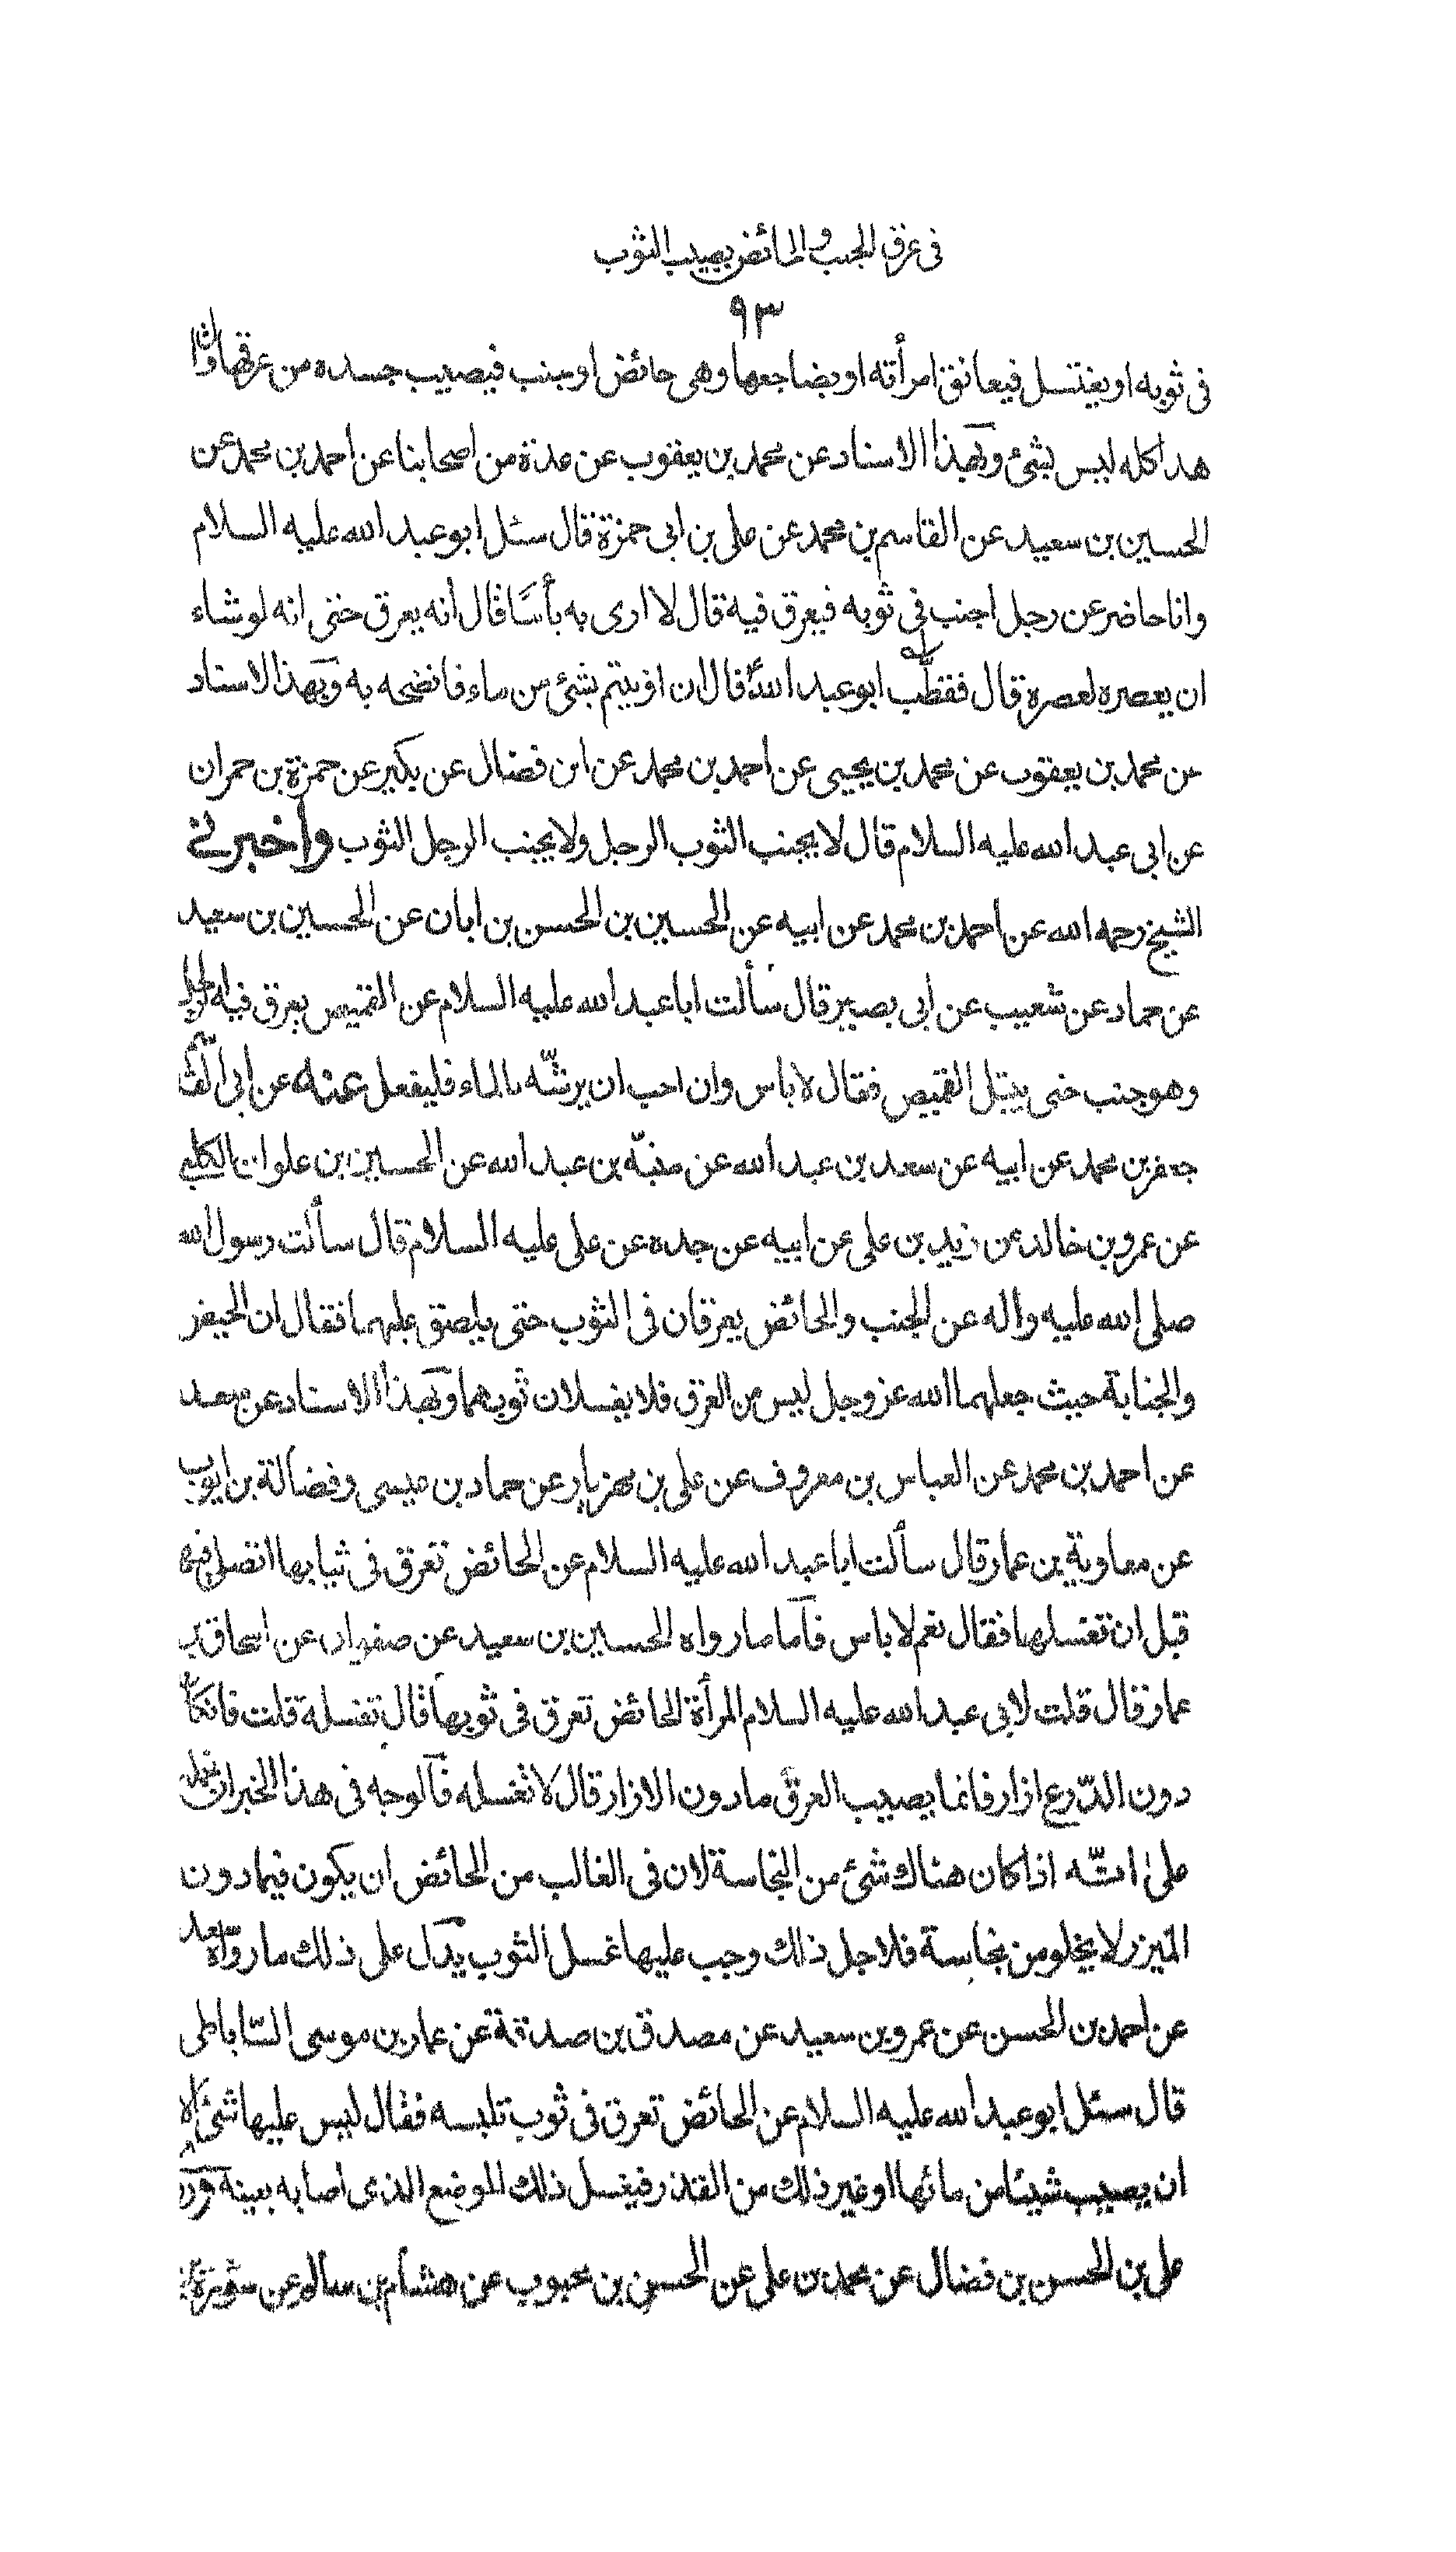 فى عرق الجنب والحائض يصيب الثوب
٩٣
فى ثوبه او يغتسل فيعانق امرأته او يضاجعها وهى حائض او جنب فيصيب جسده من عرقها قال
هذا كله ليس بشئ وبهذا الاسناد عن محمد بن يعقوب عن عدة من اصحابنا عن احمد بن محمد عن
الحسين بن سعيد عن القاسم بن محمد عن على بن ابى حمزة قال سئل ابو عبد الله عليه السلام
وانا حاضر عن رجل اجنب فى ثوبه فيعرق فيه قال لا ارى به بأسًا قال انه يعرق حتى انه لو شاء
ان يعصره لعصره قال فقطّب ابو عبد الله قال ان ابيتم بشئ من ماء فانضحه به وبهذا الاسناد
عن محمد بن يعقوب عن محمد بن يحيى عن احمد بن محمد عن ابن فضال عن بكير عن حمزة بن حمران
عن ابى عبد الله عليه السلام قال لا يجنب الثوب الرجل ولا يجنب الرجل الثوب وأخبرنى
الشيخ رحمه الله عن احمد بن محمد عن ابيه عن الحسين بن الحسن بن ابان عن الحسين بن سعيد
عن حماد عن شعيب عن ابى بصير قال سألت ابا عبد الله عليه السلام عن القميص يعرق فيه الرجل
وهو جنب حتى يبتل القميص فقال لا باس وان احب ان يرشّه بالماء فليفعل عنه عن ابى القسم
جعفر بن محمد عن ابيه عن سعد بن عبد الله عن منبّه بن عبد الله عن الحسين بن علوان الكلبى
عن عمرو بن خالد عن زيد بن على عن ابيه عن جده عن على عليه السلام قال سألت رسول الله
صلى الله عليه وأله عن الجنب والحائض يعرقان فى الثوب حتى يلصق عليهما فقال ان الحيض
والجنابة حيث جعلهما الله عز وجل ليس من العرق فلا يغسلان ثوبهما وبهذا الاسناد عن سعد
عن احمد بن محمد عن العباس بن معروف عن على بن مهزيار عن حماد بن عيسى وفضالة بن ايوب
عن معاوية بن عمار قال سألت ابا عبد الله عليه السلام عن الحائض تعرق فى ثيابها اتصلى فيها
قبل ان تغسلها فقال نعم لا باس فأما ما رواه الحسين بن سعيد عن صفوان عن اسحاق بن
عمار قال قلت لابى عبد الله عليه السلام المرأة الحائض تعرق فى ثوبها قال تغسله قلت فان كان
دون الدّرع ازار فانما يصيب العرق ما دون الازار قال لا تغسله فالوجه فى هذا الخبر ان نحمله
على انّه اذا كان هناك شئ من النجاسة لان فى الغالب من الحائض ان يكون فيما دون
الميزر لا يخلو من نجاسة فلاجل ذلك وجب عليها غسل الثوب يدل على ذلك ما رواه سعد
عن احمد بن الحسن عن عمرو بن سعيد عن مصدق بن صدقة عن عمار بن موسى السّاباطى
قال سئل ابو عبد الله عليه السلام عن الحائض تعرق فى ثوب تلبسه فقال ليس عليها شئ الا
ان يصيب شيئا من مائها او غير ذلك من القذر فيغسل ذلك الموضع الذى اصابه بعينه وروى
على بن الحسن بن فضال عن محمد بن على عن الحسن بن محبوب عن هشام بن سالم عن سورة